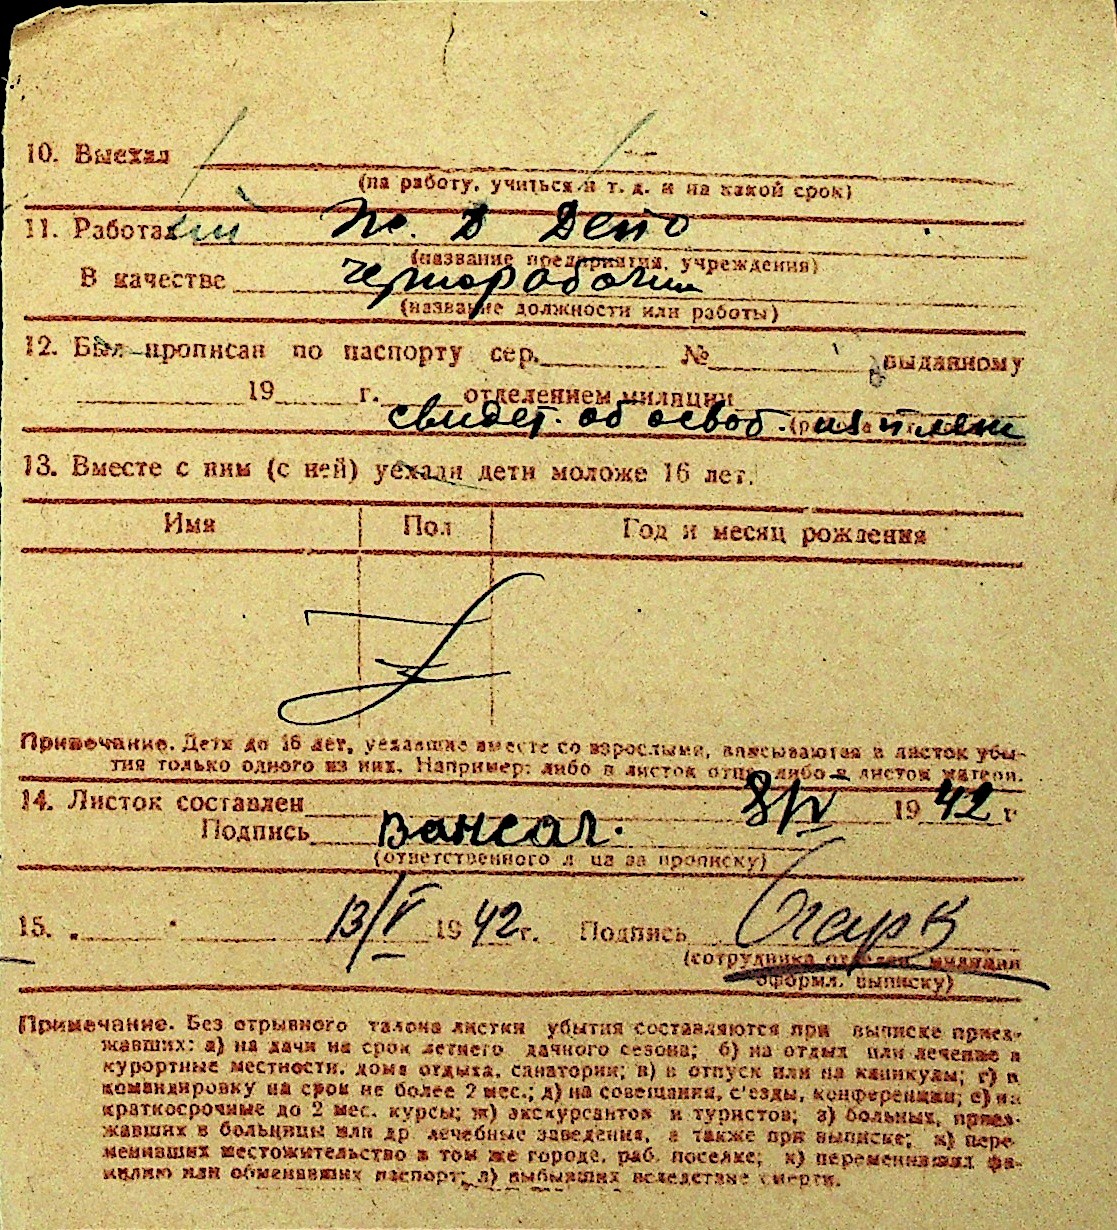 10. Выехал
(на работу, учиться и т. д. и на какой срок)
11. Работал Ж. Д Депо
(название предприятия, учреждения)
В качестве чернорабочим
(название должности или работы)
12. Был прописан по паспорту сер. № выданному
19 г. отделением милиции
свидет. об освоб. из плена
13. Вместе с ним (с ней) уехали дети моложе 16 лет.
Имя Пол Год и месяц рождения
Примечание. Дети до 16 лет, уехавшие вместе со взрослыми, вписываются в листок убы-
тия только одного из них. Например: либо в листок отца, либо в листок матери.
14. Листок составлен 8/V 1942 г
Подпись
(ответственного лица за прописку)
15. 13/V 1942 г. Подпись
(сотрудника отделен. милиции
оформл. выписку)
Примечание. Без отрывного талона листки убытия составляются при выписке приез-
жавших: а) на дачи на срок летнего дачного сезона; б) на отдых или лечение в
курортные местности, дома отдыха, санатории; в) в отпуск или на каникулы; г) в
командировку на срок не более 2 мес.; д) на совещания, с'езды, конференции; е) на
краткосрочные до 2 мес. курсы; ж) экскурсантов и туристов; з) больных, приез-
жавших в больницы или др лечебные заведения, а также при выписке; и) пере-
менивших местожительство в том же городе, раб. поселке; к) переменивших фа-
милию или обменявших паспорт; л) выбывших вследствие смерти.